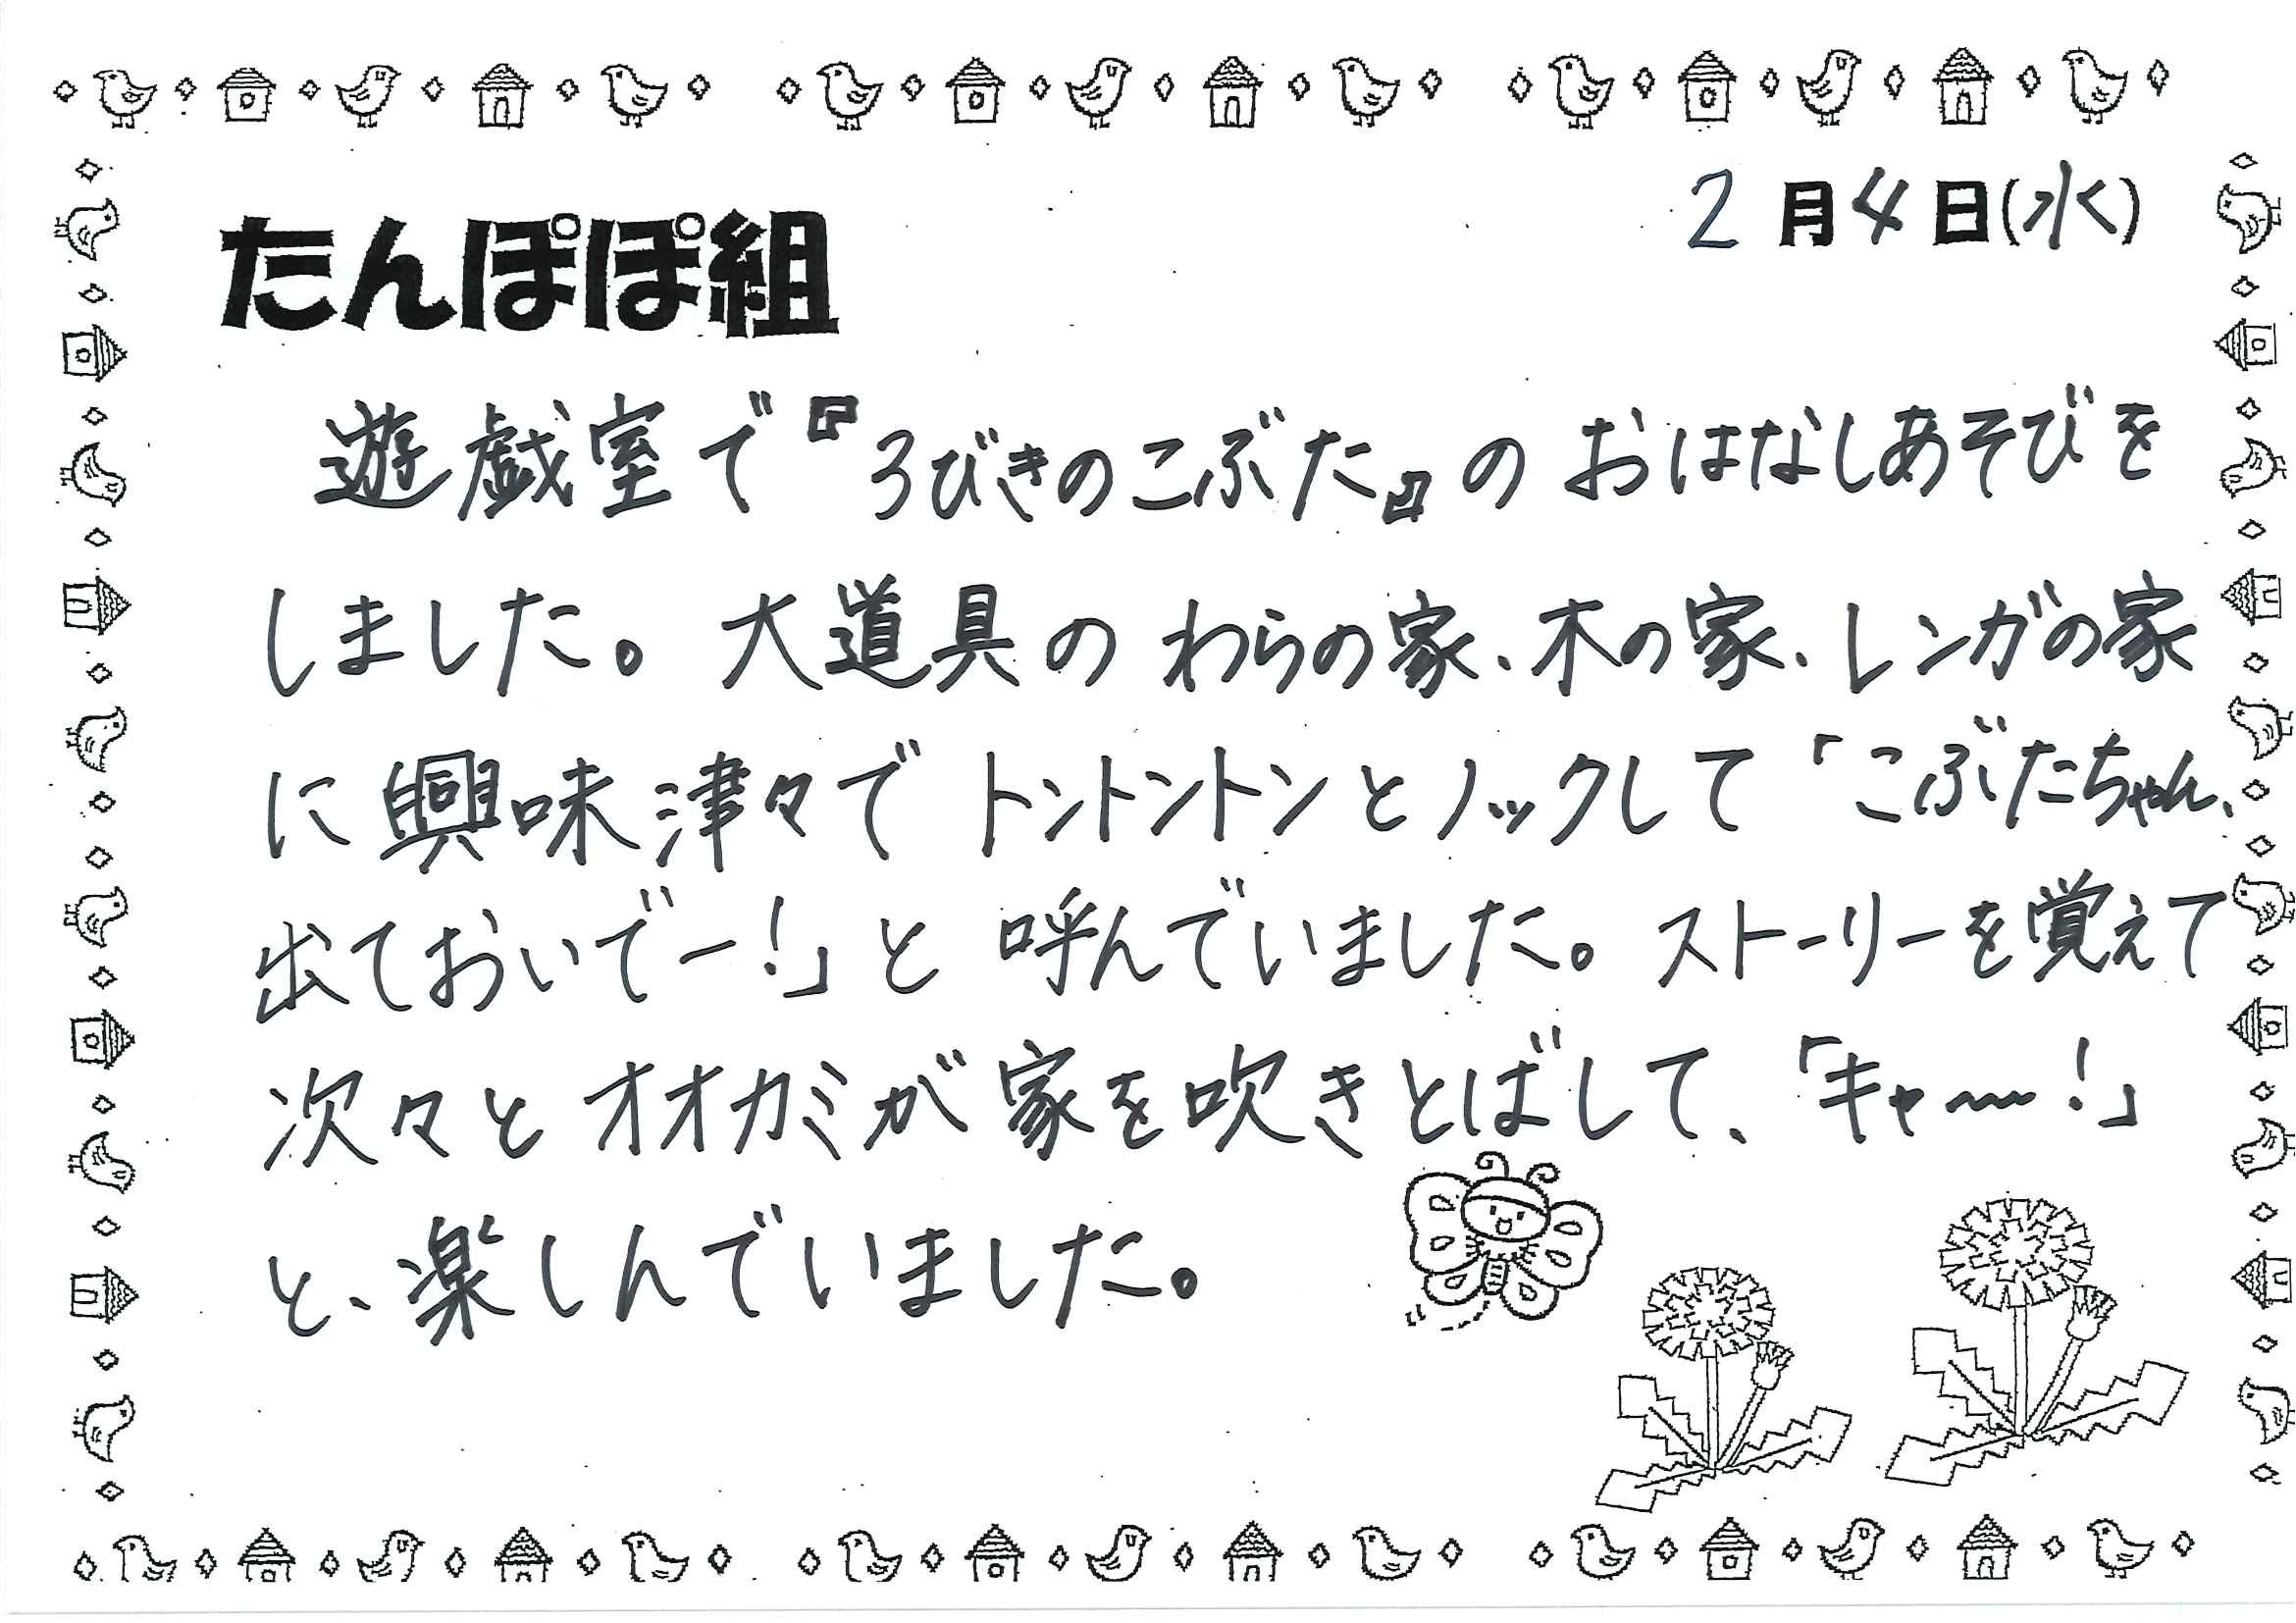 2月4日(水)
たんぽぽ組
遊戯室で『3びきのこぶた』のおはなしあそびを
しました。大道具のわらの家、木の家、レンガの家
に興味津々でトントントンとノックして「こぶたちゃん、
出ておいでー!」と呼んでいました。ストーリーを覚えて
次々とオオカミが家を吹きとばして、「キャ〜!」
と、楽しんでいました。